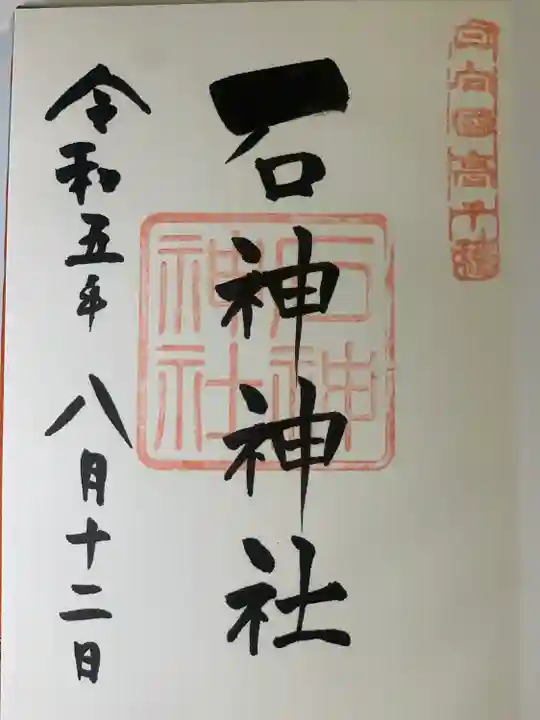 日向国高千穂
石神神社
石神神社
令和五年 八月十二日